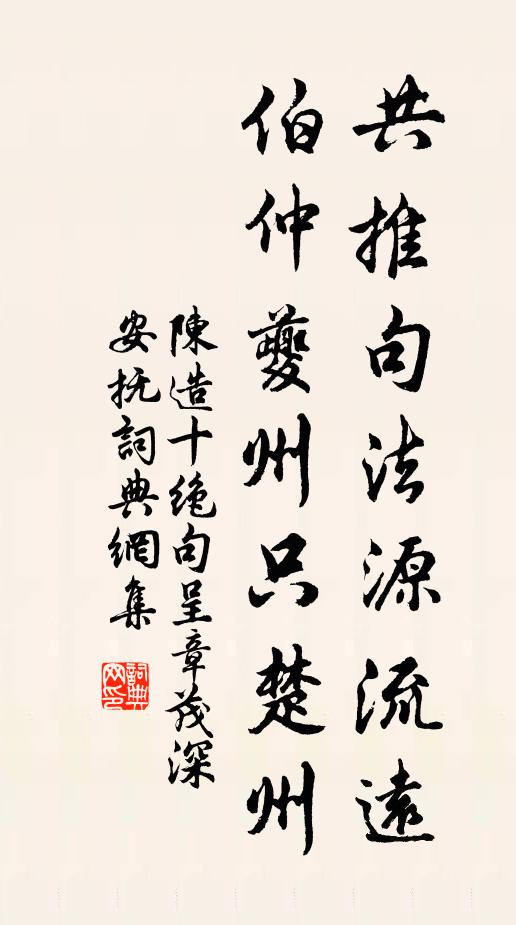 共推句法源流遠
伯仲夔州只楚州
陳造十絶句呈章茂深
安抚詞典網集
詞典网印